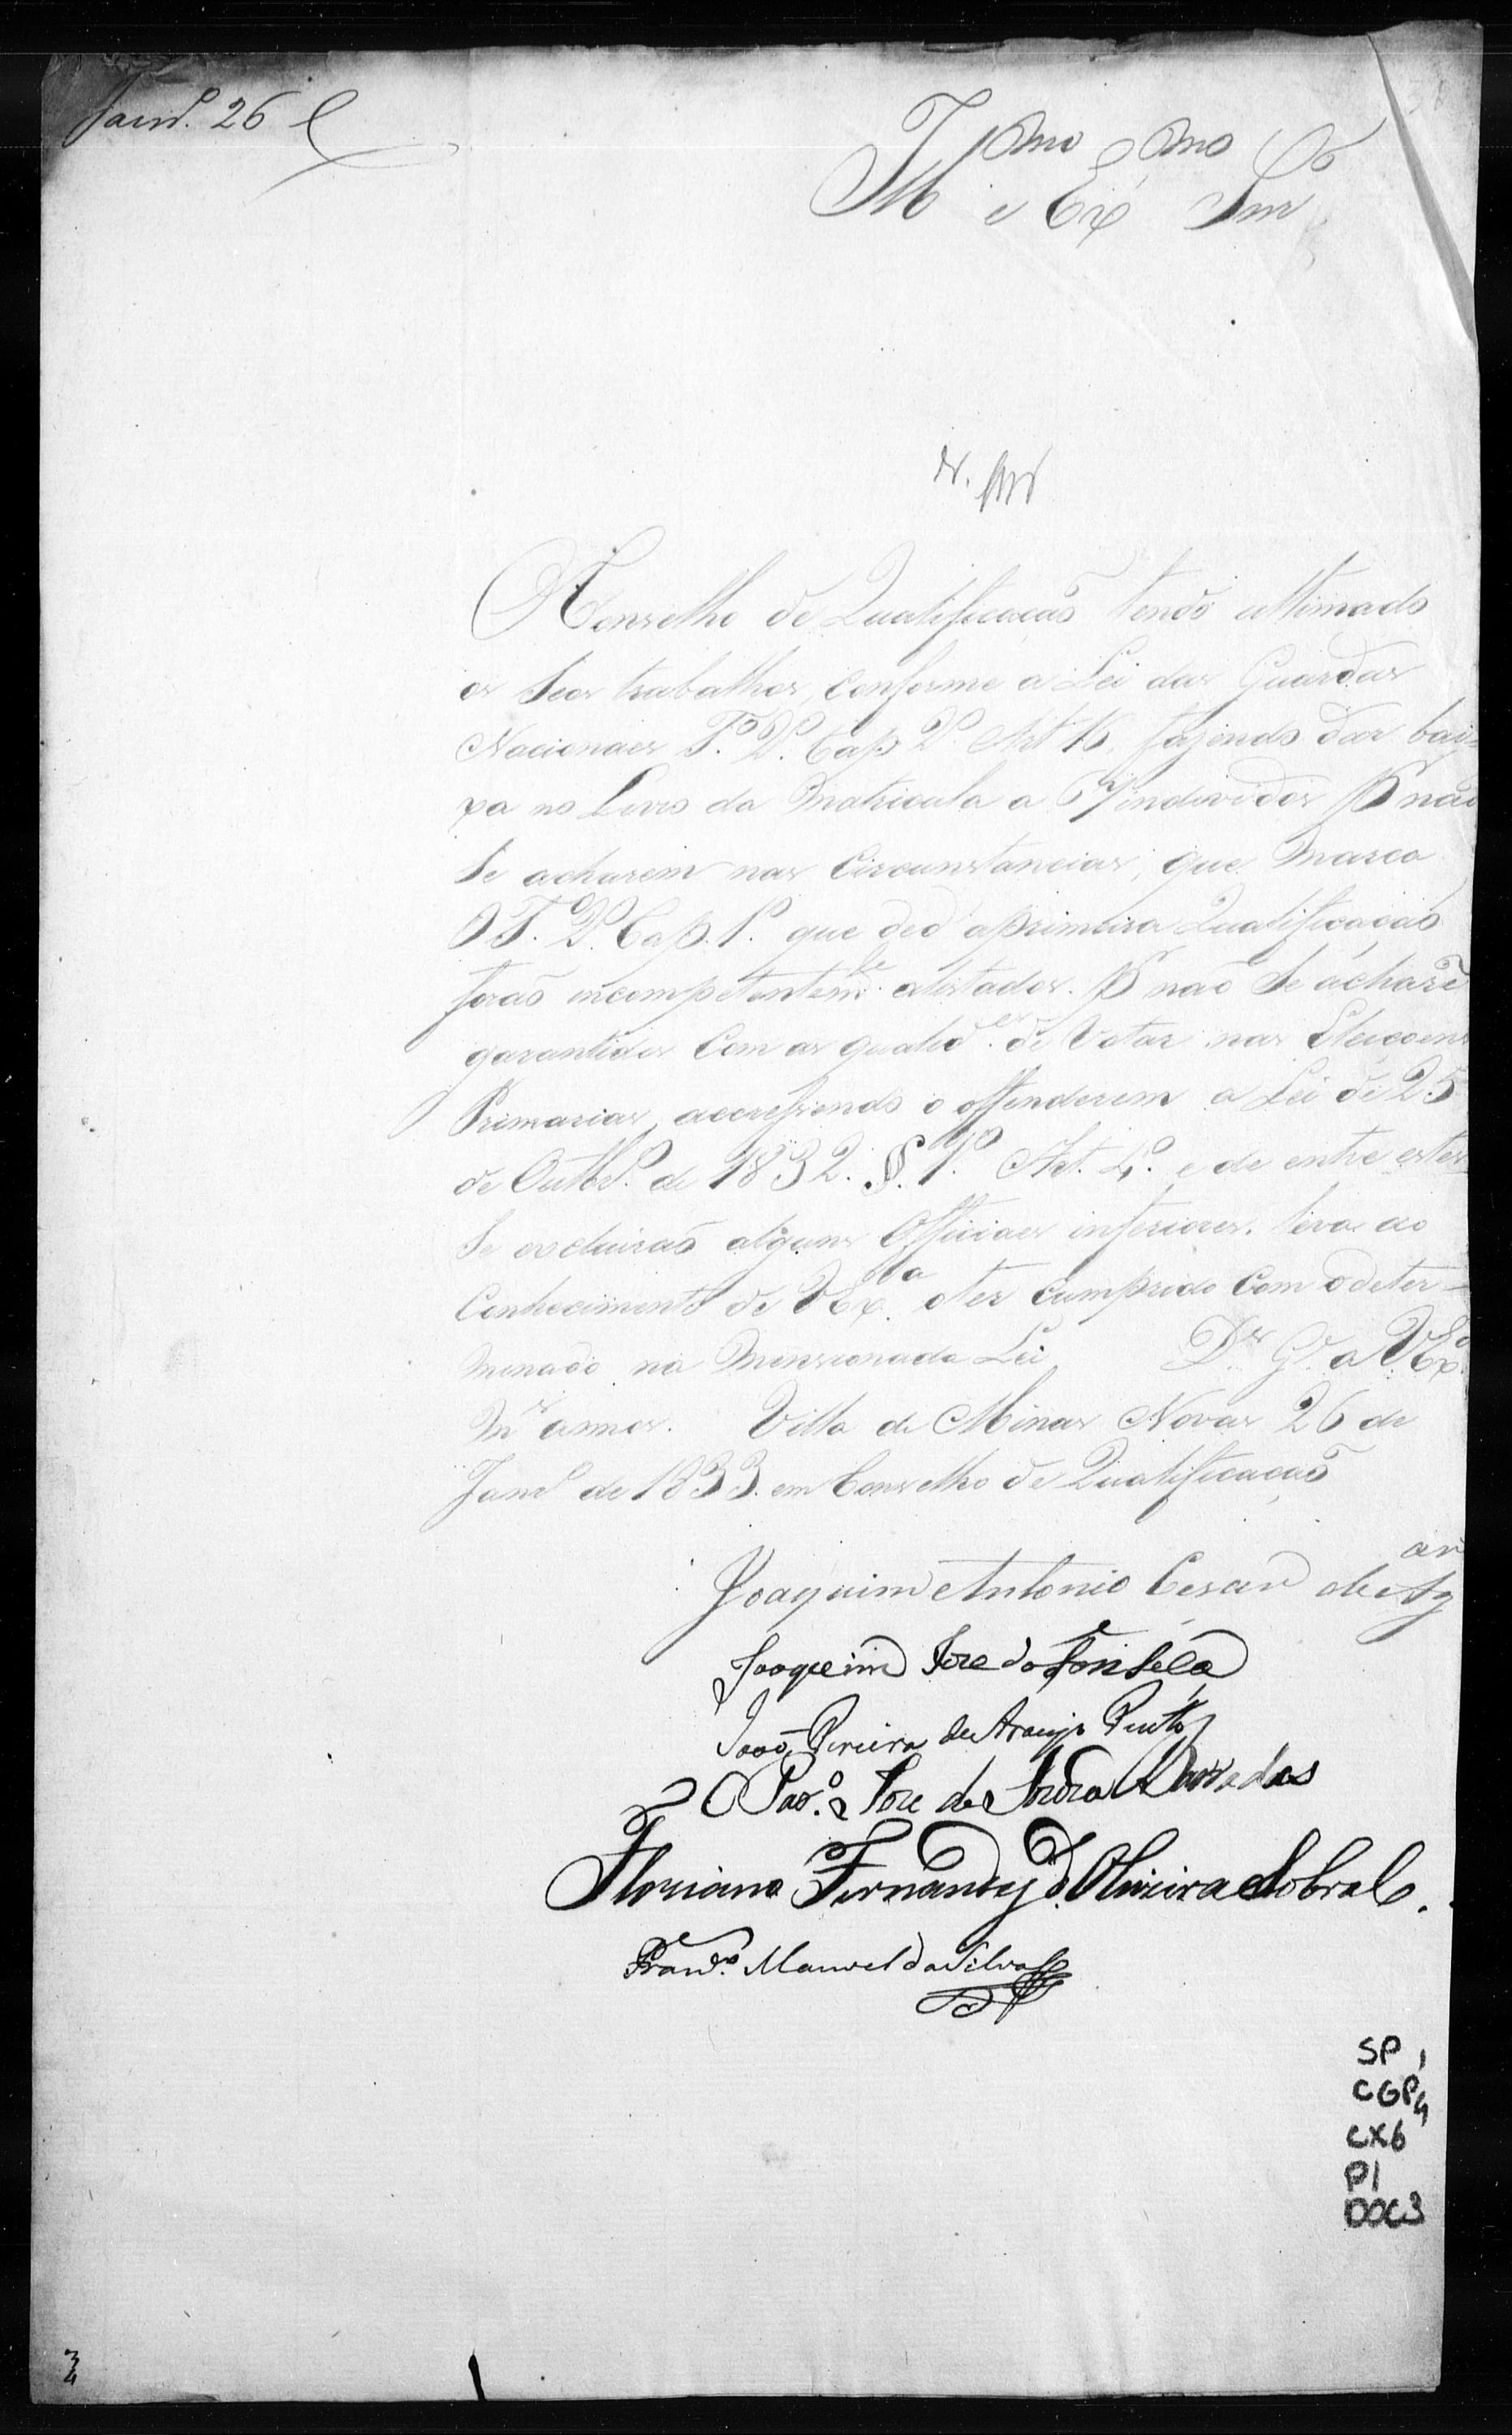 Janr.º 26
Illmo e Exmo Snr
O Conselho de Qualificacaõ tendo ultimado
os Seos trabalhos, Conforme a Lei das Guardas
Nacionaes T.º 2.º Cap 2.º Art 16, fazendo dar bai=
xa no Livro da Matricula a 67 individos p.r naõ
Se acharem nas Circunstancias, que Marca
O T. 2.º Cap. 1.º que dêd aprimeira Qualificacaõ
foraõ incompetentem.te alistados. P.r naõ Se acharẽ
garantidos Com as qualid.es de Votar nas Eleicoens
Primarias, accressendo o offenderem a Lei de 25
de Outbr.º de 1832. §. 1.º Art. 4.º e de entre estes
Se excluiraõ alguns Officiaes inferiores. leva ao
Conhecimento de V Ex.ca oter Cumprido Com odeter-
menado na Mensionada Lei D.s G.e a V Ex.ca
M.s annos. Villa de Minas Novas 26 de
Janr.º de 1833. em Conselho de Qualificacaõ
Joaquim Antonio Cesar de Az
Joaquim Jose da Fonseca
Joaõ Pereira de Araujo Pinto
O Pad.e Jose de
Floriano Fernandes d'Oliveira Sobral.
Fran.co Manoel da Silva
SP 1
CGP4
CX6
P1
DOC3
3
4